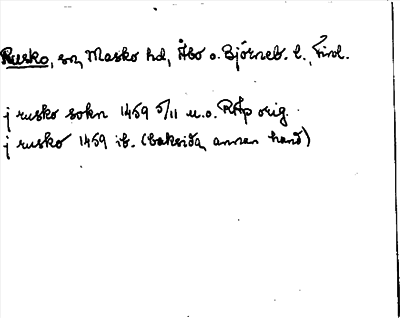 Rusko, sn, Masko hd, Åbo o. Björneb. l., Finl.
j rusko sokn 1459 5/11 u.o. RAp orig.
j rusko 1459 ib. (baksida, annan hand)